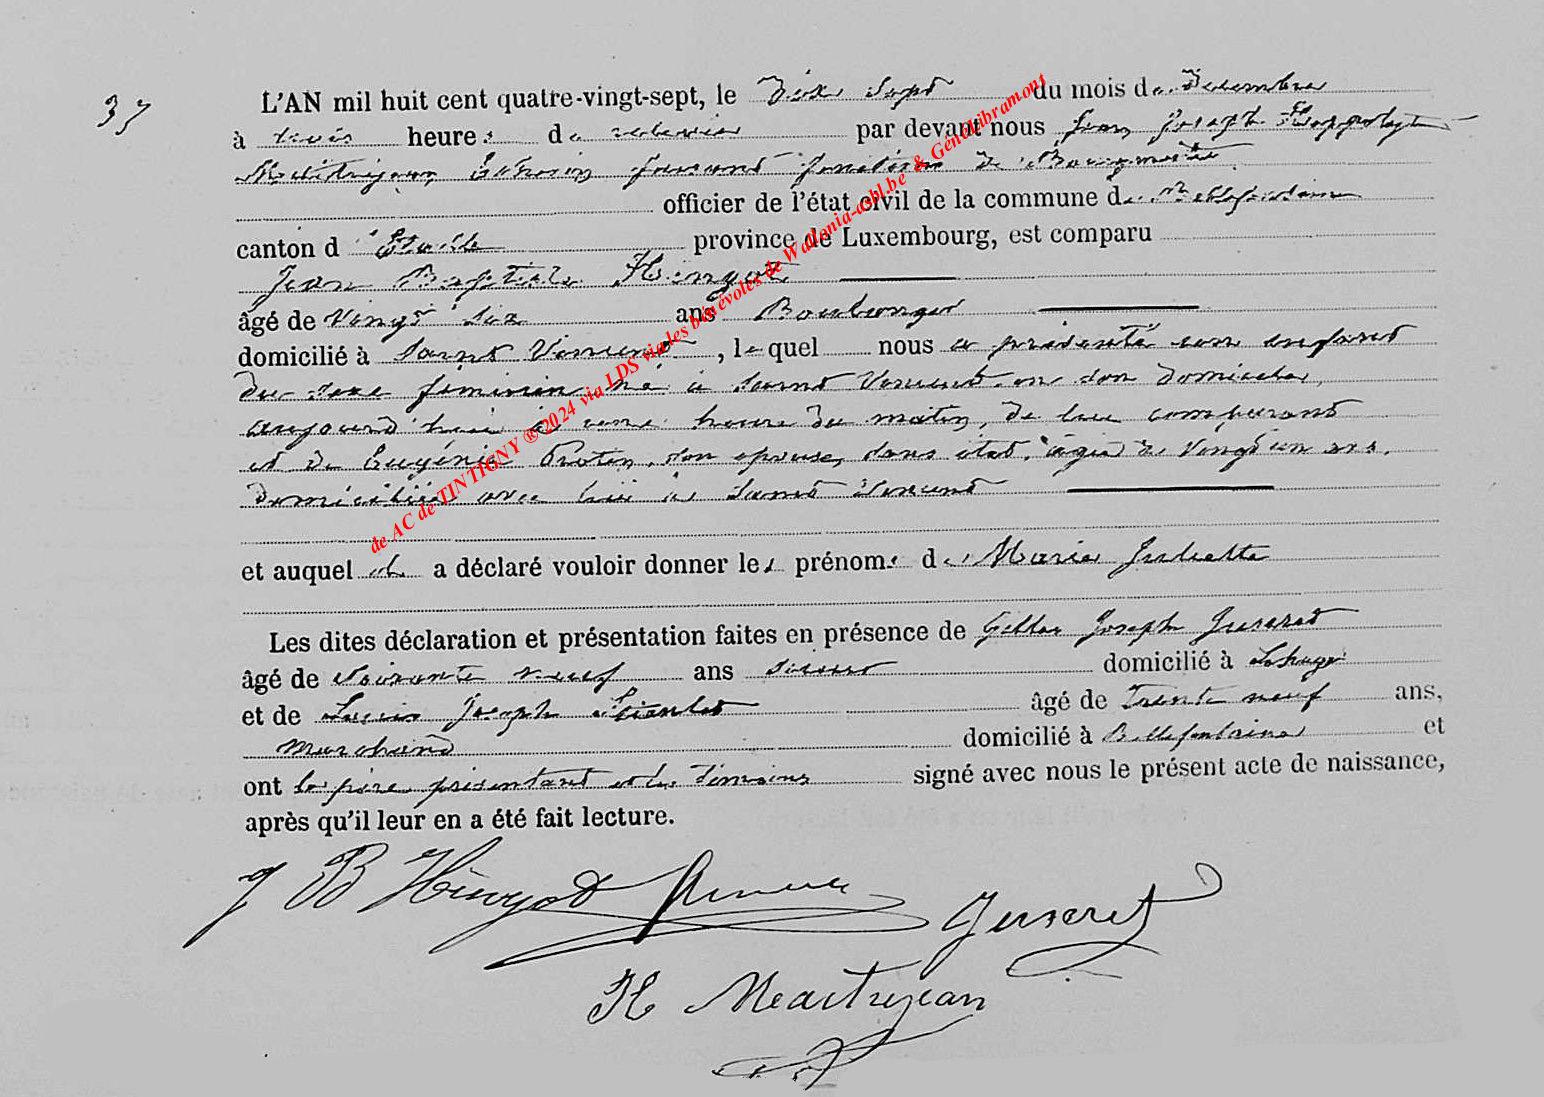 37
L'AN mil huit cent quatre-vingt-sept, le Dix Sept du mois de Décembre
à trois heures de relevée par devant nous Jean Joseph Hippolyte
Maitrejean, Echevin faisant fonction de Bourgmestre
officier de l'état civil de la commune de Bellefontaine
canton d'Etalle province de Luxembourg, est comparu
Jean Baptiste Hingot
âgé de Vingt Six ans Boulanger
domicilié à Saint Vincent, lequel nous a présenté un enfant
du sexe féminin né à Saint Vincent en son domicile,
aujourd'hui à une heure du matin, de lui comparant
et de Eugénie Protin, son épouse, sans état, âgée de Vingt un ans.
domiciliée avec lui à Saint Vincent
et auquel il a déclaré vouloir donner les prénoms de Marie Juliette
Les dites déclaration et présentation faites en présence de Joseph Juseret
âgé de neuf ans domicilié à Lahage
et de Joseph âgé de Trente neuf ans,
marchand domicilié à Bellefontaine et
ont le père présentant et les témoins signé avec nous le présent acte de naissance,
après qu'il leur en a été fait lecture.
J B Hingot Juseret
H Maitrejean
de AC de TINTIGNY ® 2024 via LDS via les bénévoles de Wallonia-asbl.be & Généalibramont